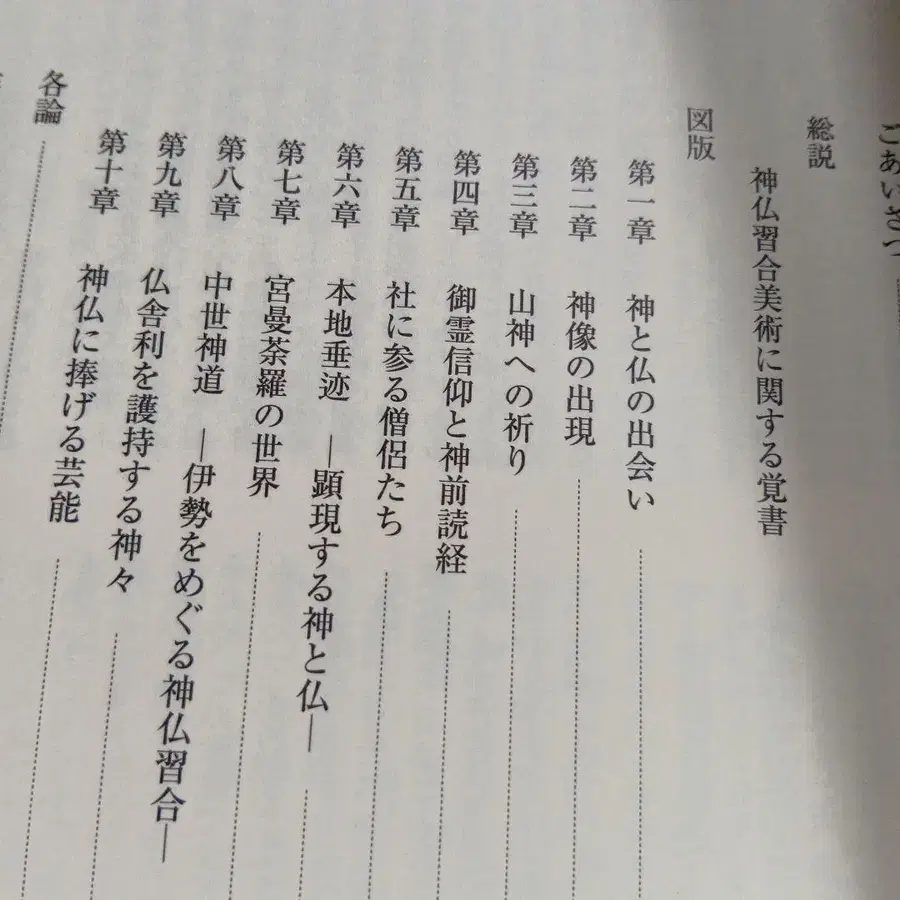 ごあいさつ
総説
神仏習合美術に関する覚書
図版
第一章 神と仏の出会い
第二章 神像の出現
第三章 山神への祈り
第四章 御霊信仰と神前読経
第五章 社に参る僧侶たち
第六章 本地垂迹 ―顕現する神と仏―
第七章 宮曼荼羅の世界
第八章 中世神道 ―伊勢をめぐる神仏習合―
第九章 仏舎利を護持する神々
第十章 神仏に捧げる芸能
各論